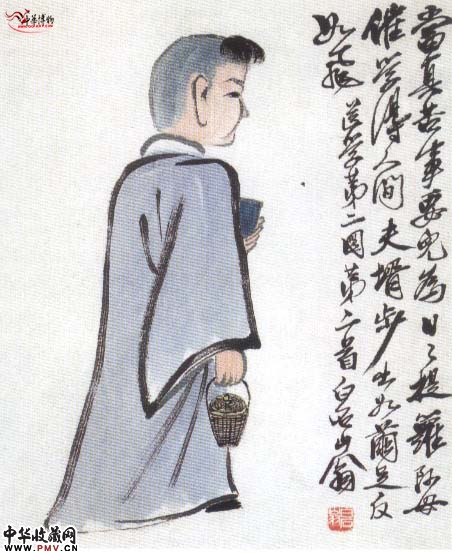 當真苦事要兒為日々提籮阿母
催學得人間夫壻步出如繭足反
如飛 送學第二圖第二首 白石山翁
中华收藏网
www.PMV.CN